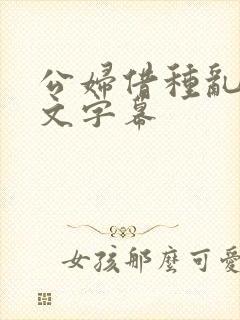 公婦借種亂
文字幕
女孩那麼可愛